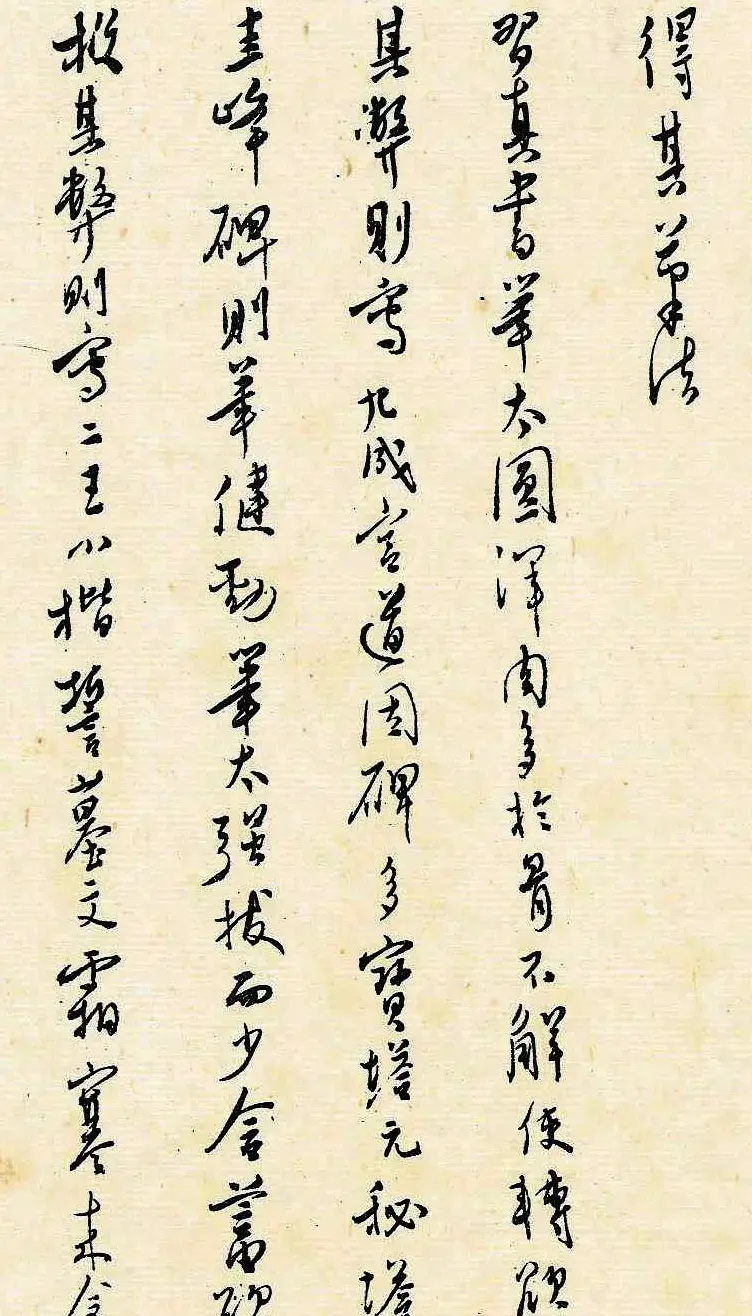 得其筆法
習真書筆太圓渾肉多於骨不解使轉欲
其弊則寫九成宫道因碑多寶塔元秘塔
圭峰碑則筆健勁筆太强拔而少含蓄欲
救其弊則寫二王小楷誓墓文霜寒来禽